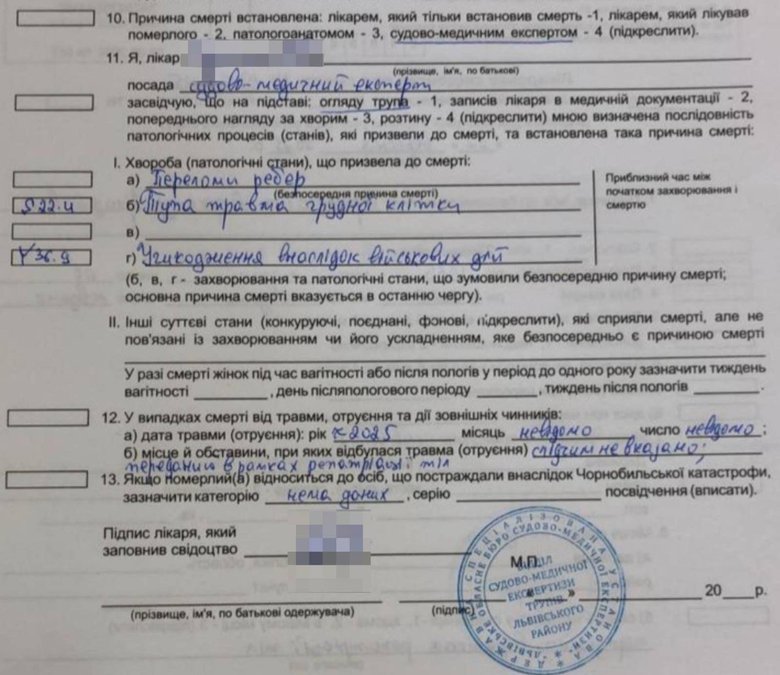 10. Причина смерті встановлена: лікарем, який тільки встановив смерть -1, лікарем, який лікував
померлого - 2, патологоанатомом - 3, судово-медичним експертом - 4 (підкреслити).
11. Я, лікар
(прізвище, ім'я, по батькові)
посада судово-медичний експерт
засвідчую, що на підставі: огляду трупа - 1, записів лікаря в медичній документації - 2,
попереднього нагляду за хворим - 3, розтину - 4 (підкреслити) мною визначена послідовність
патологічних процесів (станів), які призвели до смерті, та встановлена така причина смерті:
I. Хвороба (патологічні стани), що призвела до смерті:
а) Переломи ребер
(безпосередня причина смерті)
Приблизний час між
початком захворювання і
смертю
S 22.4 б) Тупа травма грудної клітки
в)
Y 36.9 г) Ушкодження внаслідок військових дій
(б, в, г - захворювання та патологічні стани, що зумовили безпосередню причину смерті;
основна причина смерті вказується в останню чергу).
II. Інші суттєві стани (конкуруючі, поєднані, фонові, підкреслити), які сприяли смерті, але не
пов'язані із захворюванням чи його ускладненням, яке безпосередньо є причиною смерті
У разі смерті жінок під час вагітності або після пологів у період до одного року зазначити тиждень
вагітності , день післяпологового періоду , тиждень після пологів .
12. У випадках смерті від травми, отруєння та дії зовнішніх чинників:
а) дата травми (отруєння): рік ≈2025 місяць невідомо число невідомо ;
б) місце й обставини, при яких відбулася травма (отруєння) слідчим не вказано;
переданий в рамках репатріації тіл
13. Якщо померлий(а) відноситься до осіб, що постраждали внаслідок Чорнобильської катастрофи,
зазначити категорію нема даних , серію посвідчення (вписати).
Підпис лікаря, який
заповнив свідоцтво
М.П.
" " 20 р.
(прізвище, ім'я, по батькові одержувача) (підпис)
ДЕРЖАВНА СПЕЦІАЛІЗОВАНА УСТАНОВА
"ЛЬВІВСЬКЕ ОБЛАСНЕ БЮРО СУДОВО-МЕДИЧНОЇ ЕКСПЕРТИЗИ"
ВІДДІЛ
СУДОВО-МЕДИЧНОЇ
ЕКСПЕРТИЗИ
ТРУПІВ
ЛЬВІВСЬКОГО
РАЙОНУ